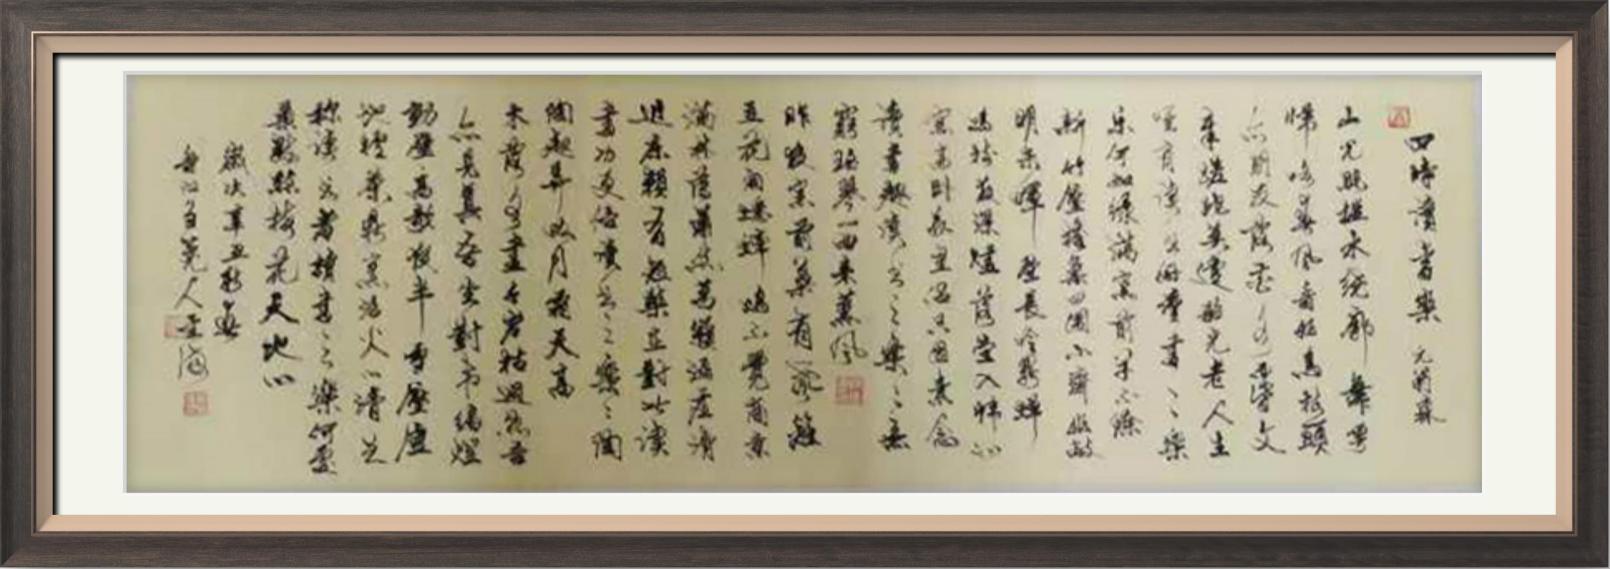 四時讀書樂 元翁森
山光照檻水繞廊舞雩
歸詠春風香好鳥枝頭
亦朋友落花水面皆文
章蹉跎莫遣韶光老人生
唯有讀書好讀書之樂
樂何如綠滿窗前草不除
新竹壓檐桑四圍小齋幽敞
明朱暉晝長吟罷蟬
鳴樹夜深燼落螢入幃北
窗高臥羲皇侶只因素念
讀書趣讀書之樂樂無
窮瑤琴一曲來薰風
昨夜窗前葉有聲籬
豆花開蟋蟀鳴不覺商意
滿林薄蕭然萬籟涵虛清
近床賴有短檠在對此讀
書功更倍讀書之樂樂陶
陶起弄明月霜天高
木落水盡千岩枯迥然吾
亦見真吾坐對韋編燈
動壁高歌夜半雪壓廬
地爐茶鼎烹活火心清足
稱讀書者讀書之樂何處
尋數點梅花天地心
歲次辛丑秋
人海